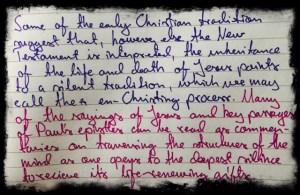 Some of the early Christian tradition
suggest that, however else the New
Testament is interpreted, the inheritance
of the life and death of Jesus points
to a silent tradition, which we may
call the a en-Christing process. Many
of the sayings of Jesus and key passages
of Paul's epistles can be read as commen-
taries on traversing the structures of the
mind as one opens to the deepest silence
to recieve its life-renewing gifts.